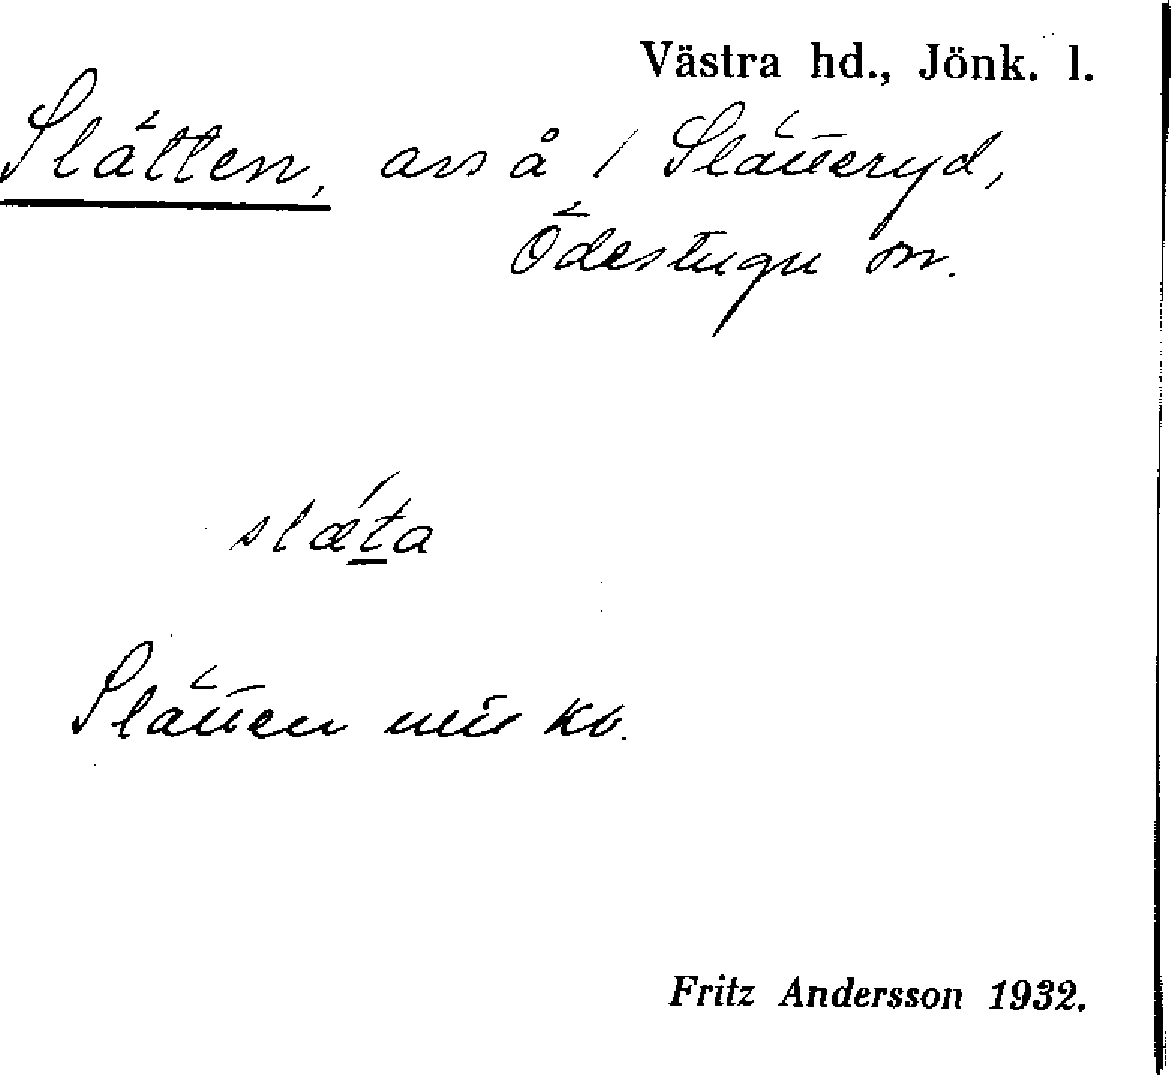 Västra hd., Jönk. l.
Slätten, avs å 1 Slätteryd,
Ödestugu sn.
slæta
Slätten utk kb.
Fritz Andersson 1932.